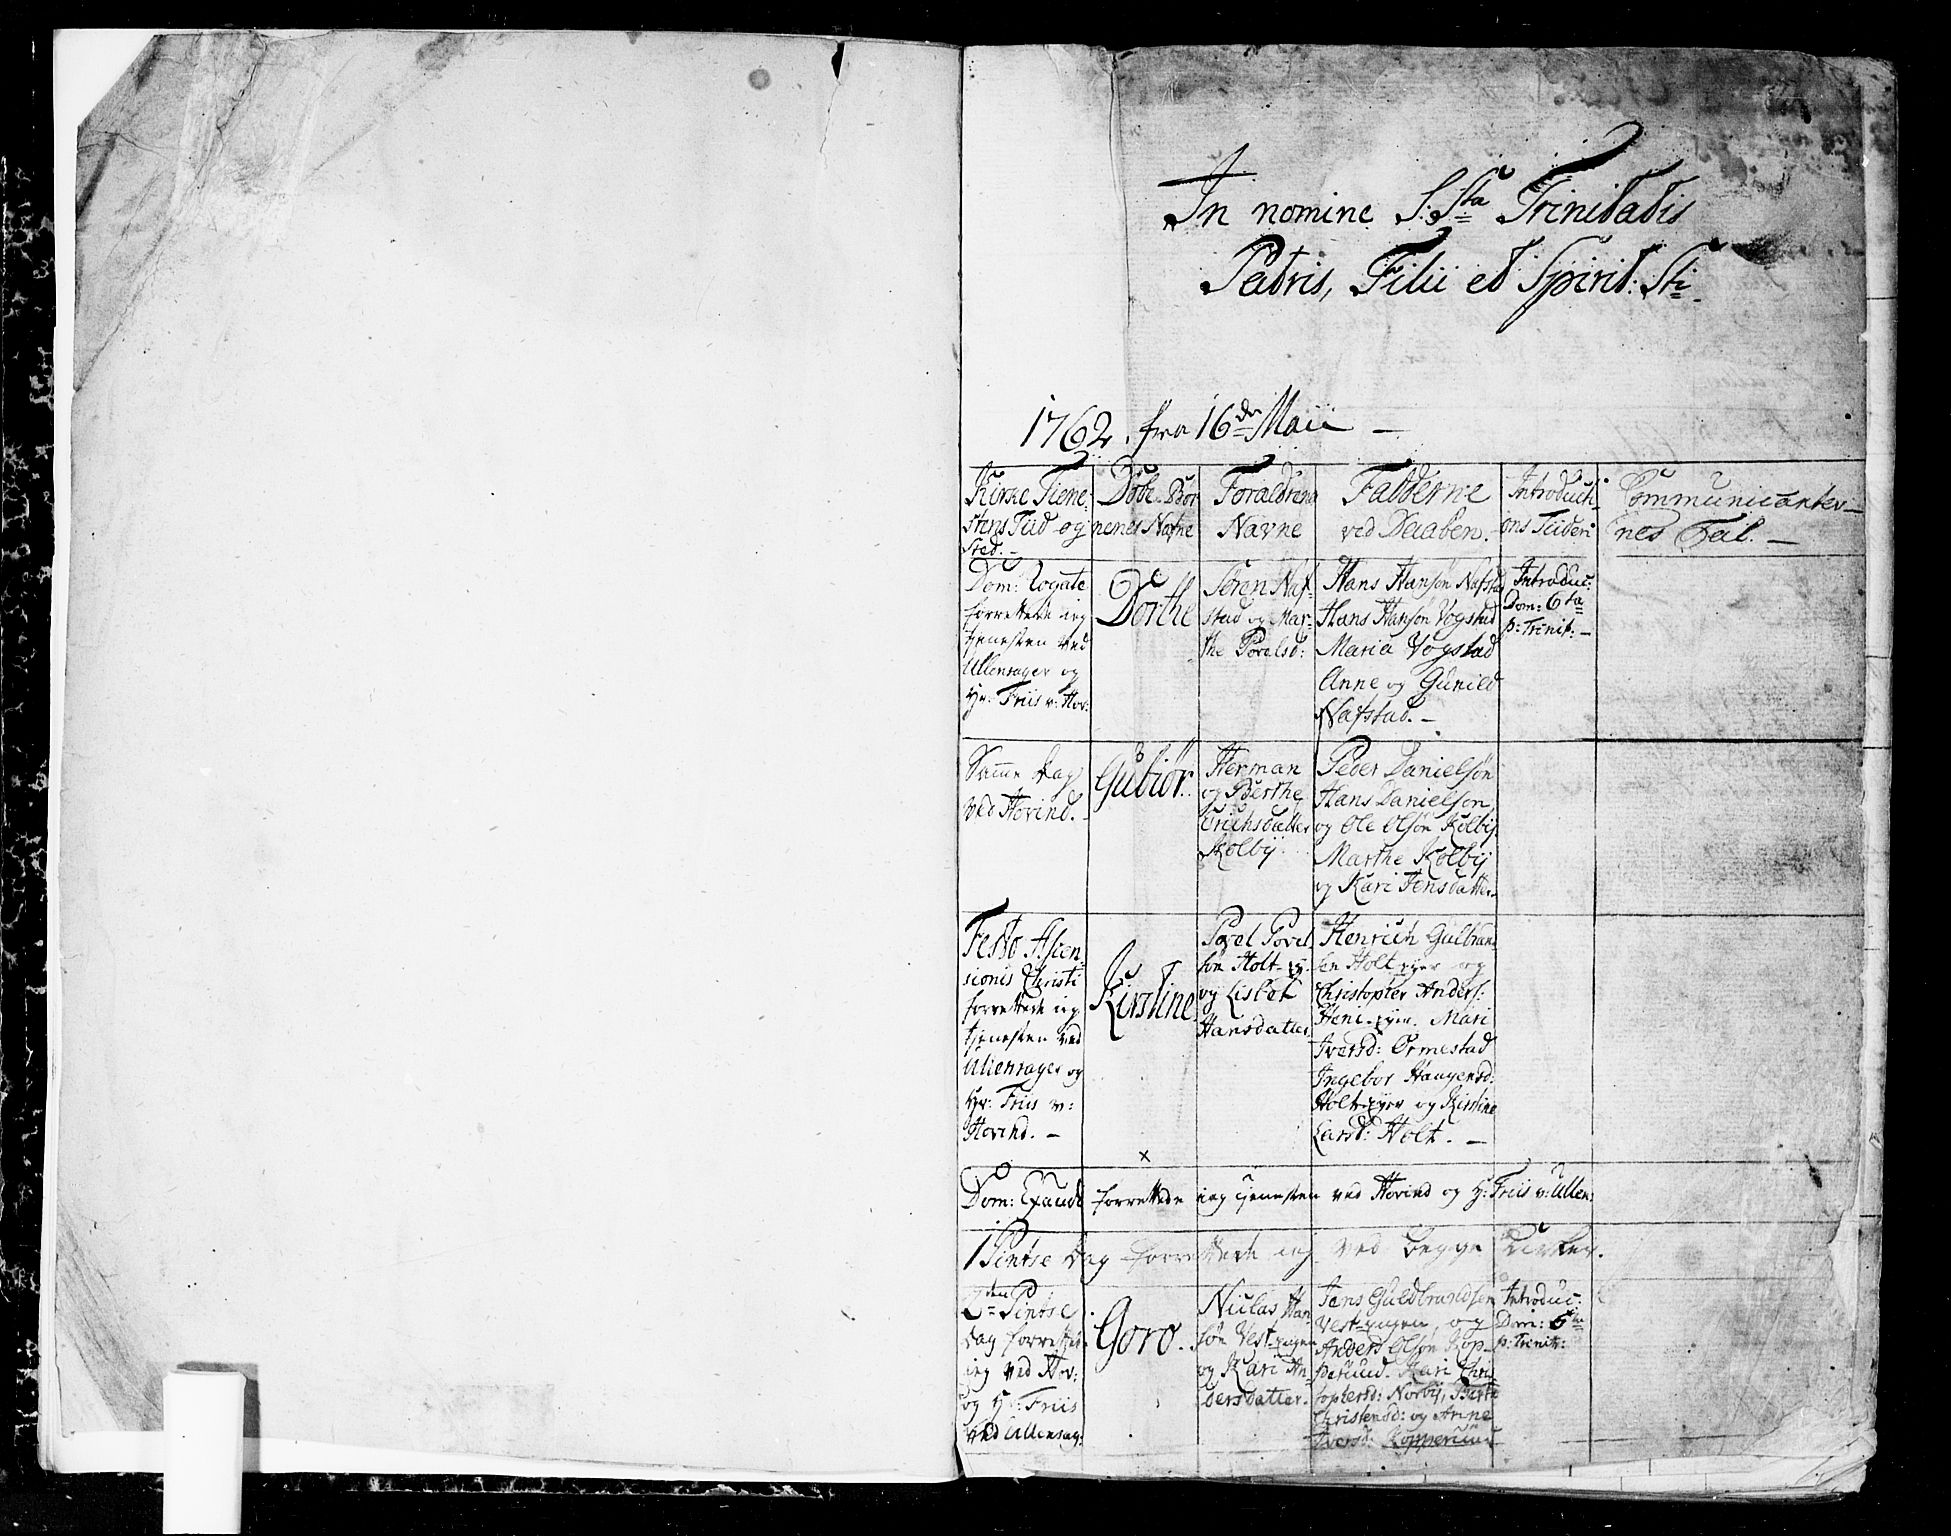 In nomine S: Stæ Trinitatis
Patris, Filii et Spirit: Sti
1762. fra 16de Maii —
Kirke Tiene-
stens Tiid og
Sted. —
Døbe-Bør
nenes Nafne
Forældrene
Navne
Fadderne
ved Daaben.
Introducti
ons Tiiden
Communicanter-
nes Tal. —
Dom: Rogate
forrettede ieg
tienesten ved
Ullensager og
Hr: Friis v: Hov:
Dorthe
Sören Naf-
stad og Mar-
the Povelsd:
Hans Hansøn Nafstad
Hans Hansøn Vogstad
Maria Vogstad
Anne og Gunild
Nafstad. —
Introduc:
Dom: 6ta
p: Trinit: —
Samme Dag
ved Hovind. —
Gubiør.
Herman
og Berthe
Erichsdatter
Kolbÿ.
Peder Danielsøn
Hans Danielsøn
og Ole Olsøn Kolbÿ
Marthe Kolbÿ
og Kari Jensdatter.
Festo Ascen-
sionis Christi
forrettede ieg
tjenesten ved
Ullensager og
Hr: Friis v:
Hovind. —
Kirstine
Povel Povel
søn Holt-
og Lisbet
Hansdatter
Henrich Gulbran
sen Holt og
Christopher Anders:
Mari
Iversd: Ormestad
Ingebor Haagensd:
og Kirstine
Larsd: Holt. —
x
Dom: Exaudi forrettede ieg tjenesten ved Hovind og H: Friis v: Ullen:
1 Pintse Dag forrettede ieg ved begge Kirker.
2den Pintse
Dag forrettede
ieg ved Hov:
og Hr: Friis
ved Ullensag:
Goro.
Niclas Han
søn Vest-
og Kari An
dersdatter.
Jens Guldbrandsøn
og
Anders Olsøn Kop-
perund. Kari Chri
stophersd: Norbÿ, Birte
Christensd: og Anne
Iversd: Kopperuud
Introduc:
Dom: 6ta
p: Trinit: